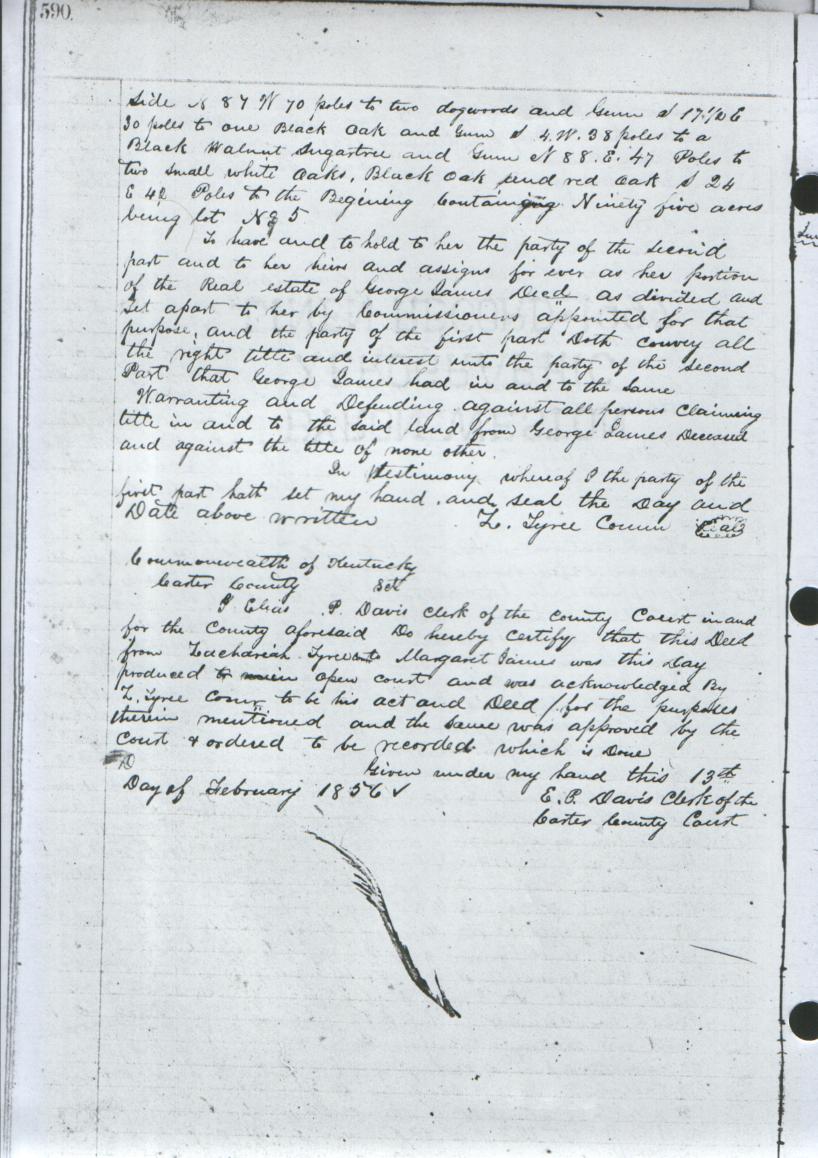 590.
Side N 87 W 70 poles to two dogwoods and Gum S 17½ E
30 poles to one Black Oak and Gum S 4. W. 38 poles to a
Black Walnut Sugartree and Gum N 88. E. 47 Poles to
two small white Oaks, Black Oak and red Oak S 24
E 42 Poles to the Begining Containing Ninety five acres
being lot No 5
To have and to hold to her the party of the second
part and to her heirs and assigns for ever as her portion
of the Real estate of George James Decd as divided and
Set apart to her by Commissioners appointed for that
purpose, and the party of the first part Doth convey all
the right title and interest unto the party of the second
Part that George James had in and to the Same
Warranting and Defending against all persons Claiming
title in and to the said land from George James Deceased
and against the title of none other.
In testimony whereof I the party of the
first part hath set my hand and seal the Day and
Date above written Z. Tyree Comm Seal
Commonwealth of Kentucky
Carter County Sct
I Elias P. Davis Clerk of the County Court in and
for the County aforesaid Do hereby Certify that this Deed
from Zachariah Tyree to Margaret James was this Day
produced to me in open court and was acknowledged By
Z. Tyree Comr to be his act and Deed for the purposes
therein mentioned and the Same was approved by the
Court & ordered to be recorded which is Done
Given under my hand this 13th
Day of February 1856
E. P. Davis Clerk of the
Carter County Court